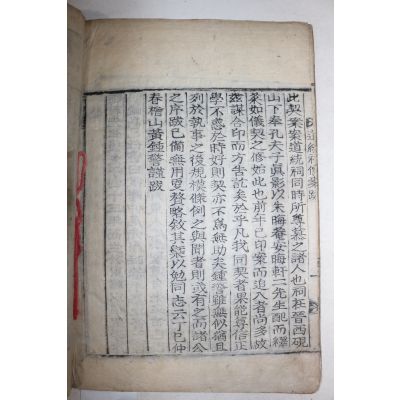 此契案案道統祠同時所尊慕之諸人也祠在晉西硯
山下奉孔夫子眞影以朱晦菴安晦軒二先生配而繹
菜如儀契之修始此也前年已印案而追入者尚多故
玆謀合印而方告訖矣於乎凡我同契者果能尊信正
學不惑於時好則契亦不爲無助矣鍾警雖無似猶且
列於執事之後規模條例之與聞者則或有之而諸公
之序跋已備無用更贅略敘其槩以勉同志云丁巳仲
春檜山黃鍾警謹跋